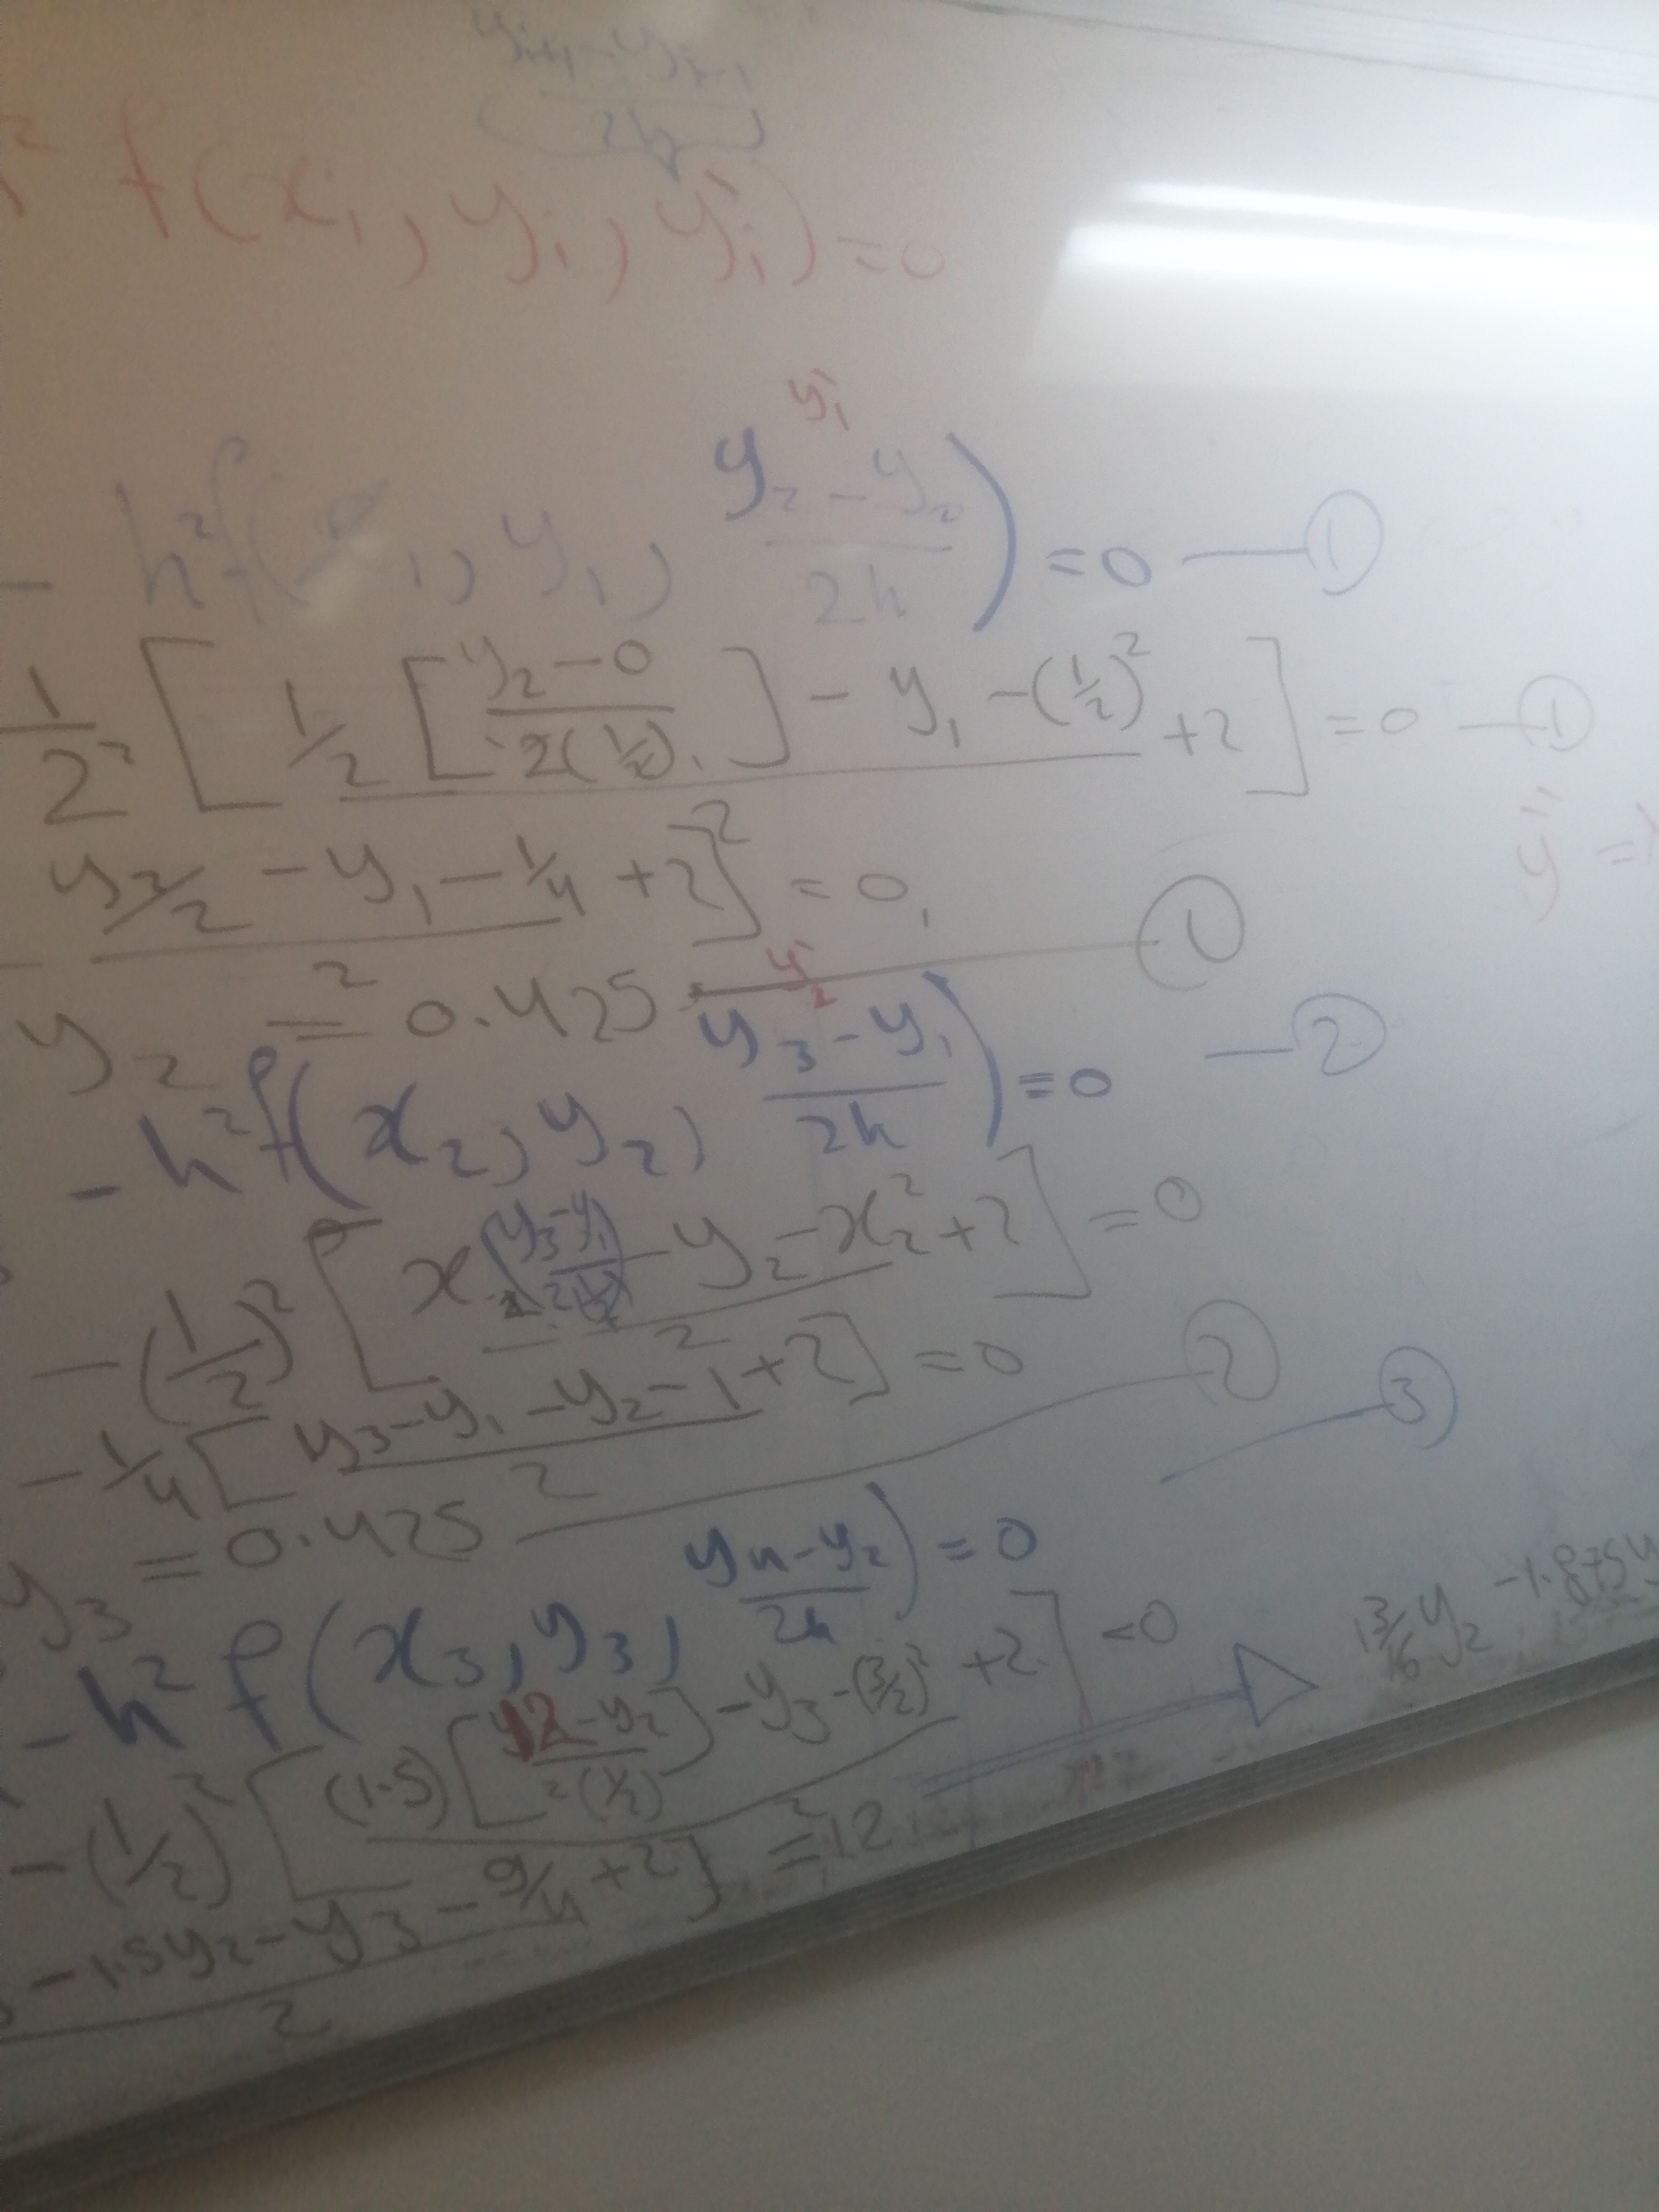 y_{i+1} - y_{i-1}
2h
² f(x_i, y_i, y'_i) = 0
y'_1
- h² f( ₁, y_1, (y_2 - y_0)/2h ) = 0 — ①
1/2² [ 1/2 [ (y_2 - 0)/2(1/2) ] - y_1 - (1/2)² + 2 ] = 0 — ①
2
y_2/2 - y_1 - 1/4 + 2 ]² = 0
y'' =
2
y_2 = 0.425 — ①
y'_2
- h² f(x_2, y_2, (y_3 - y_1)/2h ) = 0 — ②
- (1/2)² [ x_2 (y_3 - y_1)/2(1/2) - y_2 - x_2² + 2 ] = 0
2
- 1/4 [ y_3 - y_1 - y_2 - 1² + 2 ] = 0
2
y_3 = 0.425 — ②
— ③
- h² f(x_3, y_3, (y_4 - y_2)/2h ) = 0
- (1/2)² [ (1.5) [ (12 - y_2)/2(1/2) ] - y_3 - (3/2)² + 2 ] = 0
2
13/16 y_2 - 1.875 y
- 1.5y_2 - y_3 - 9/4 + 2 ] = 12
2